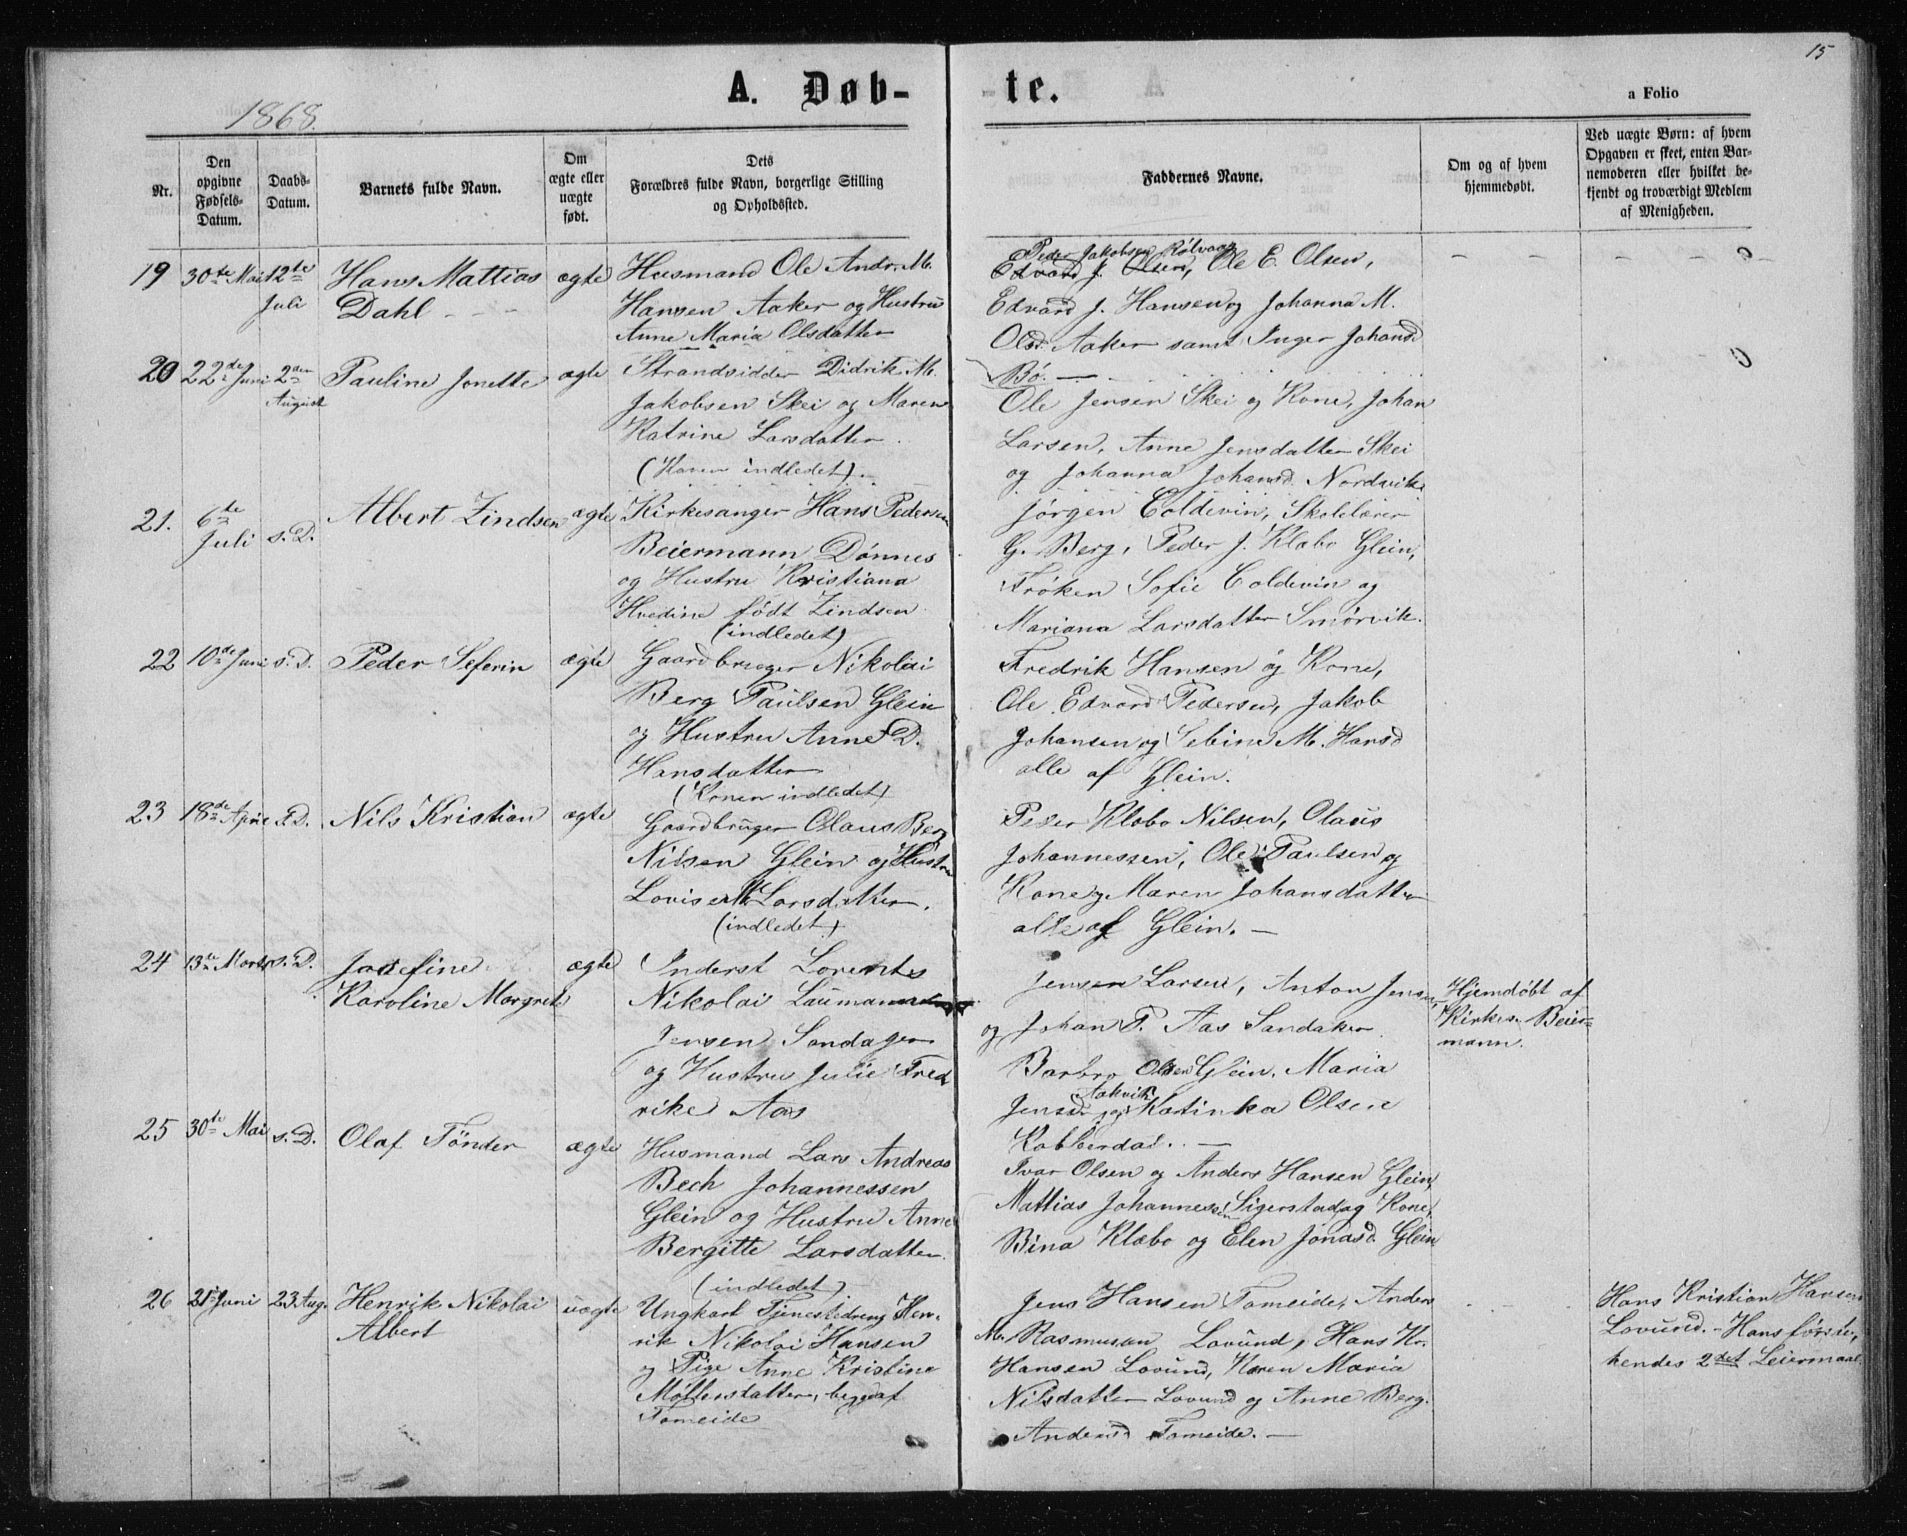 15
A. Døb-te.
a Folio
1868.
Nr.
Den opgivne Fødsels-Datum.
Daabs-Datum.
Barnets fulde Navn.
Om ægte eller uægte født.
Dets Forældres fulde Navn, borgerlige Stilling og Opholdssted.
Faddernes Navne.
Om og af hvem hjemmedøbt.
Ved uægte Børn: af hvem Opgaven er skeet, enten Barnemoderen eller hvilket bekjendt og troværdigt Medlem af Menigheden.
19 30te Mai 12te Juli
Hans Mattias
Dahl
ægte
Husmand Ole Andr. M.
Hansen Aaker og Hustru
Anne Maria Olsdatter
Peder Jakobsen Rølvaag
Edvard J. Olsen, Ole E. Olsen,
Edvard J. Hansen og Johanna M.
Olsd. Aaker samt Inger Johansd
Bø.
20 22de Juni 2den August
Pauline Jonette
ægte
Strandsidder Didrik M.
Jakobsen Skei og Maren
Katrine Larsdatter.
(Konen indledet).
Ole Jensen Skei og Kone, Johan
Larsen, Anne Jensdatter Skei
og Johanna Johansd. Nordvik
21. 6te Juli s. D.
Albert Zindsen
ægte
Kirkesanger Hans Pedersen
Beiermann Dønnes
og Hustru Kristiana
Hvedine født Zindsen
(indledet)
Jørgen Coldevin, Skolelærer
G. Berg, Peder J. Klæbo Glein,
Frøken Sofie Coldevin og
Mariana Larsdatter Smørvik.
22 10de Juni s. D.
Peder Seferin
ægte
Gaardbruger Nikolai
Berg Paulsen Glein
og Hustru Anne D.
Hansdatter
(Konen indledet)
Fredrik Hansen og Kone,
Ole Edvard Pedersen, Jakob
Johansen og Sebine M. Hansd
alle af Glein.
23 18de April s. D.
Nils Kristian
ægte
Gaardbruger Olaus Berg
Nilsen Glein og Hustru
Lovise M. Larsdatter.
(indledet)
Peder Klæbo Nilsen, Olaus
Johannessen, Ole Paulsen og
Kone og Maren Johansdatter
alle af Glein.
24 13te Marts s. D.
Josefine
Karoline Margrete
ægte
Inderst Lorents
Nikolai Laumann
Jensen Sandager
og Hustru Julie Fred
rike Aas
Jensen Larsen, Anton Jensen,
og Johan P. Aas Sandaker
Barbro Olsen Glein, Maria
Aakvik
Jensd og Katinka Olsen
Kobberdal.
Hjemdøbt af
Kirkes. Beier-
mann.
25 30te Mai s. D.
Olaf Tønder
ægte
Husmand Lars Andreas
Bech Johannessen
Glein og Hustru Anne
Bergitte Larsdatter
(indledet)
Ivar Olsen og Anders Hansen Glein,
Mattias Johannessen Sigerstad og Kone,
Bina Klæbo og Elen Jonasd. Glein
26 21 Juni 23 Aug.
Henrik Nikolai
Albert
uægte
Ungkarl Tjenestedreng Hen-
rik Nikolai Hansen
og Pige Anne Kristine
Møllersdatter, begge af
Tomeide
Jens Hansen Tomeide, Anders
M. Rasmussen Lovund, Hans Kr.
Hansen Lovund, Karen Maria
Nilsdatter Lovund og Anne Berg.
Andersd Tomeide.
Hans Kristian Hansen
Lovund. - Hans første,
hendes 2det Leiermaal